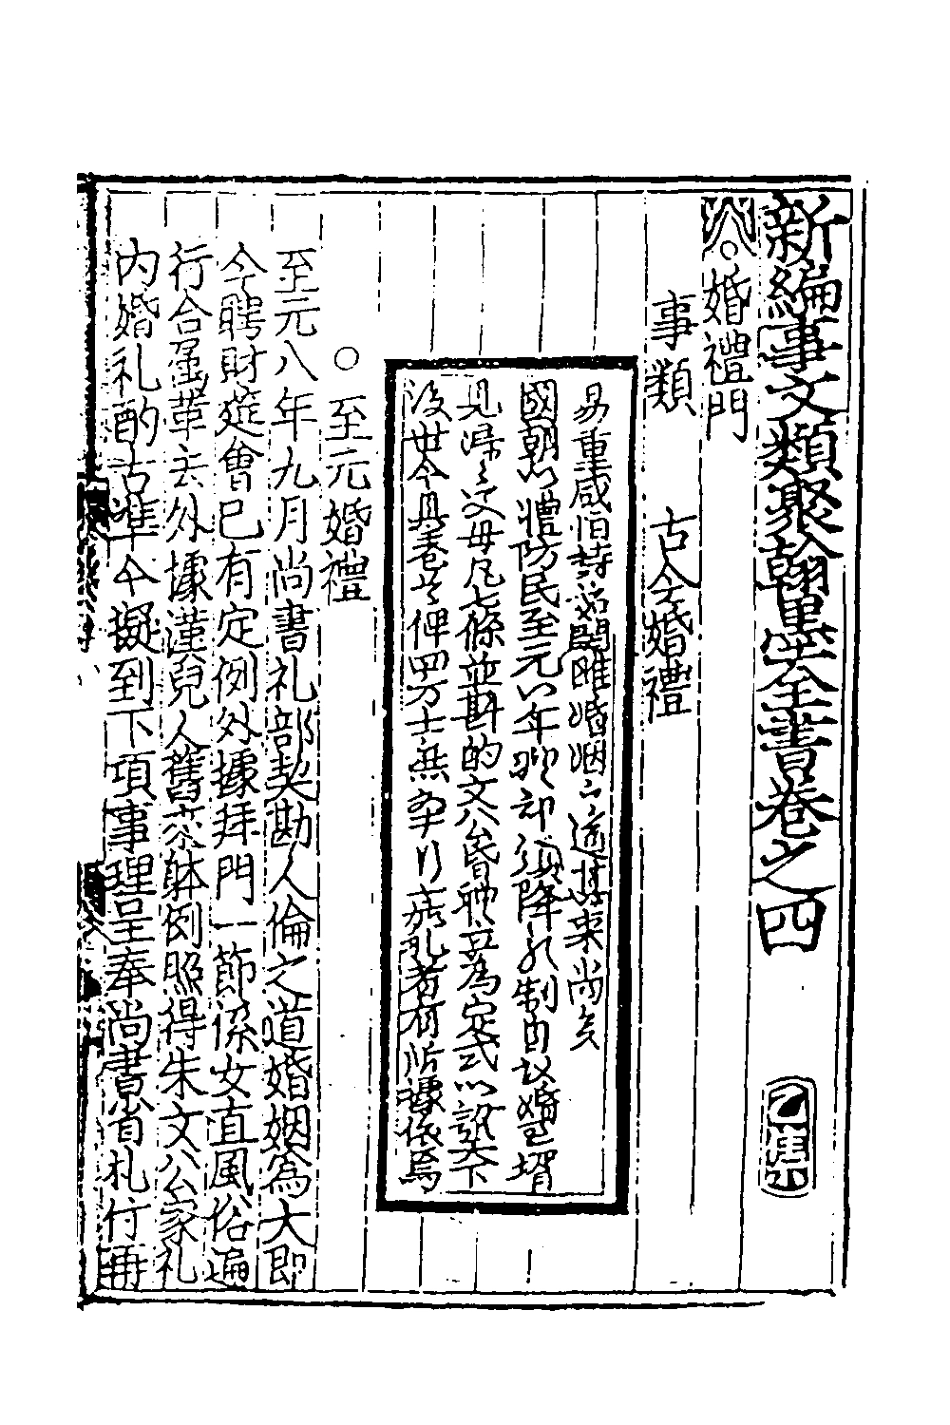 新編事文類聚翰墨全書卷之四 乙集
婚禮門
事類 古今婚禮
易重咸恒詩始關雎婚姻之道其來尚矣
國朝以禮防民至元八年礼部頒降礼制自議婚至壻
見婦之父母凡七條並斟酌文公婚礼立為定式以訓天下
後世今具卷首俾四方士庶切行婚礼者有所據依焉
○至元婚禮
至元八年九月尚書礼部契勘人倫之道婚姻為大即
今聘財筵會已有定例外據拜門一節係女直風俗遍
行合屬革去外據漢兒人舊來體例照得朱文公家礼
內婚礼酌古準今擬到下項事理呈奉尚書省札付再